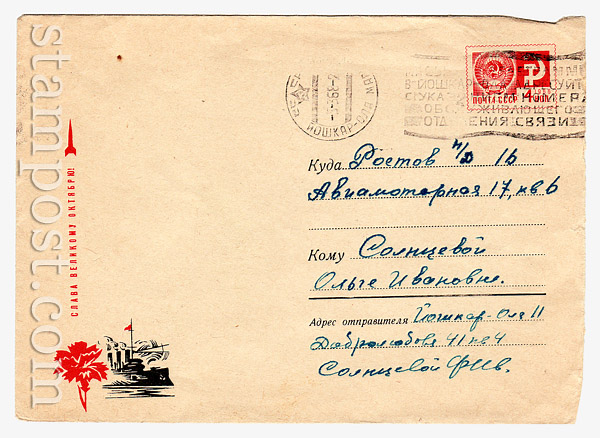 ЙОШКАР-ОЛА МАР
ПОЧТА СССР 4 КОП
НОМЕРА
ЖИВАЮЩЕГО
ЕНИЯ СВЯЗИ
Куда Ростов н/Д 16
Авиамоторная 17, кв 6
Кому Солнцевой
Ольге Ивановне.
Адрес отправителя Йошкар-Ола 11
Добролюбова 41 кв 4
Солнцевой
СЛАВА ВЕЛИКОМУ ОКТЯБРЮ!
stampost.com